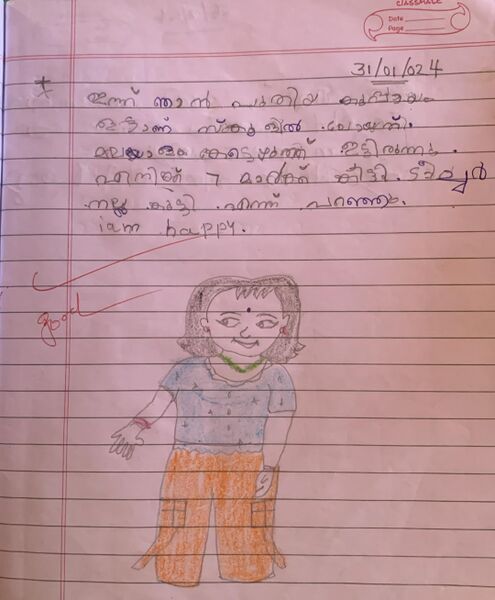 CLASSMATE
Date
Page
31/01/024
ഇന്ന് ഞാൻ പുതിയ കുപ്പായം
ഇട്ടാണ് സ്കൂളിൽ പോയത്.
മലയാളം കേട്ടെഴുത്ത് ഇട്ടിരുന്നു.
എനിക്ക് 7 മാർക്ക് കിട്ടി. ടീച്ചർ
നല്ല കുട്ടി എന്ന് പറഞ്ഞു.
iam happy.
good